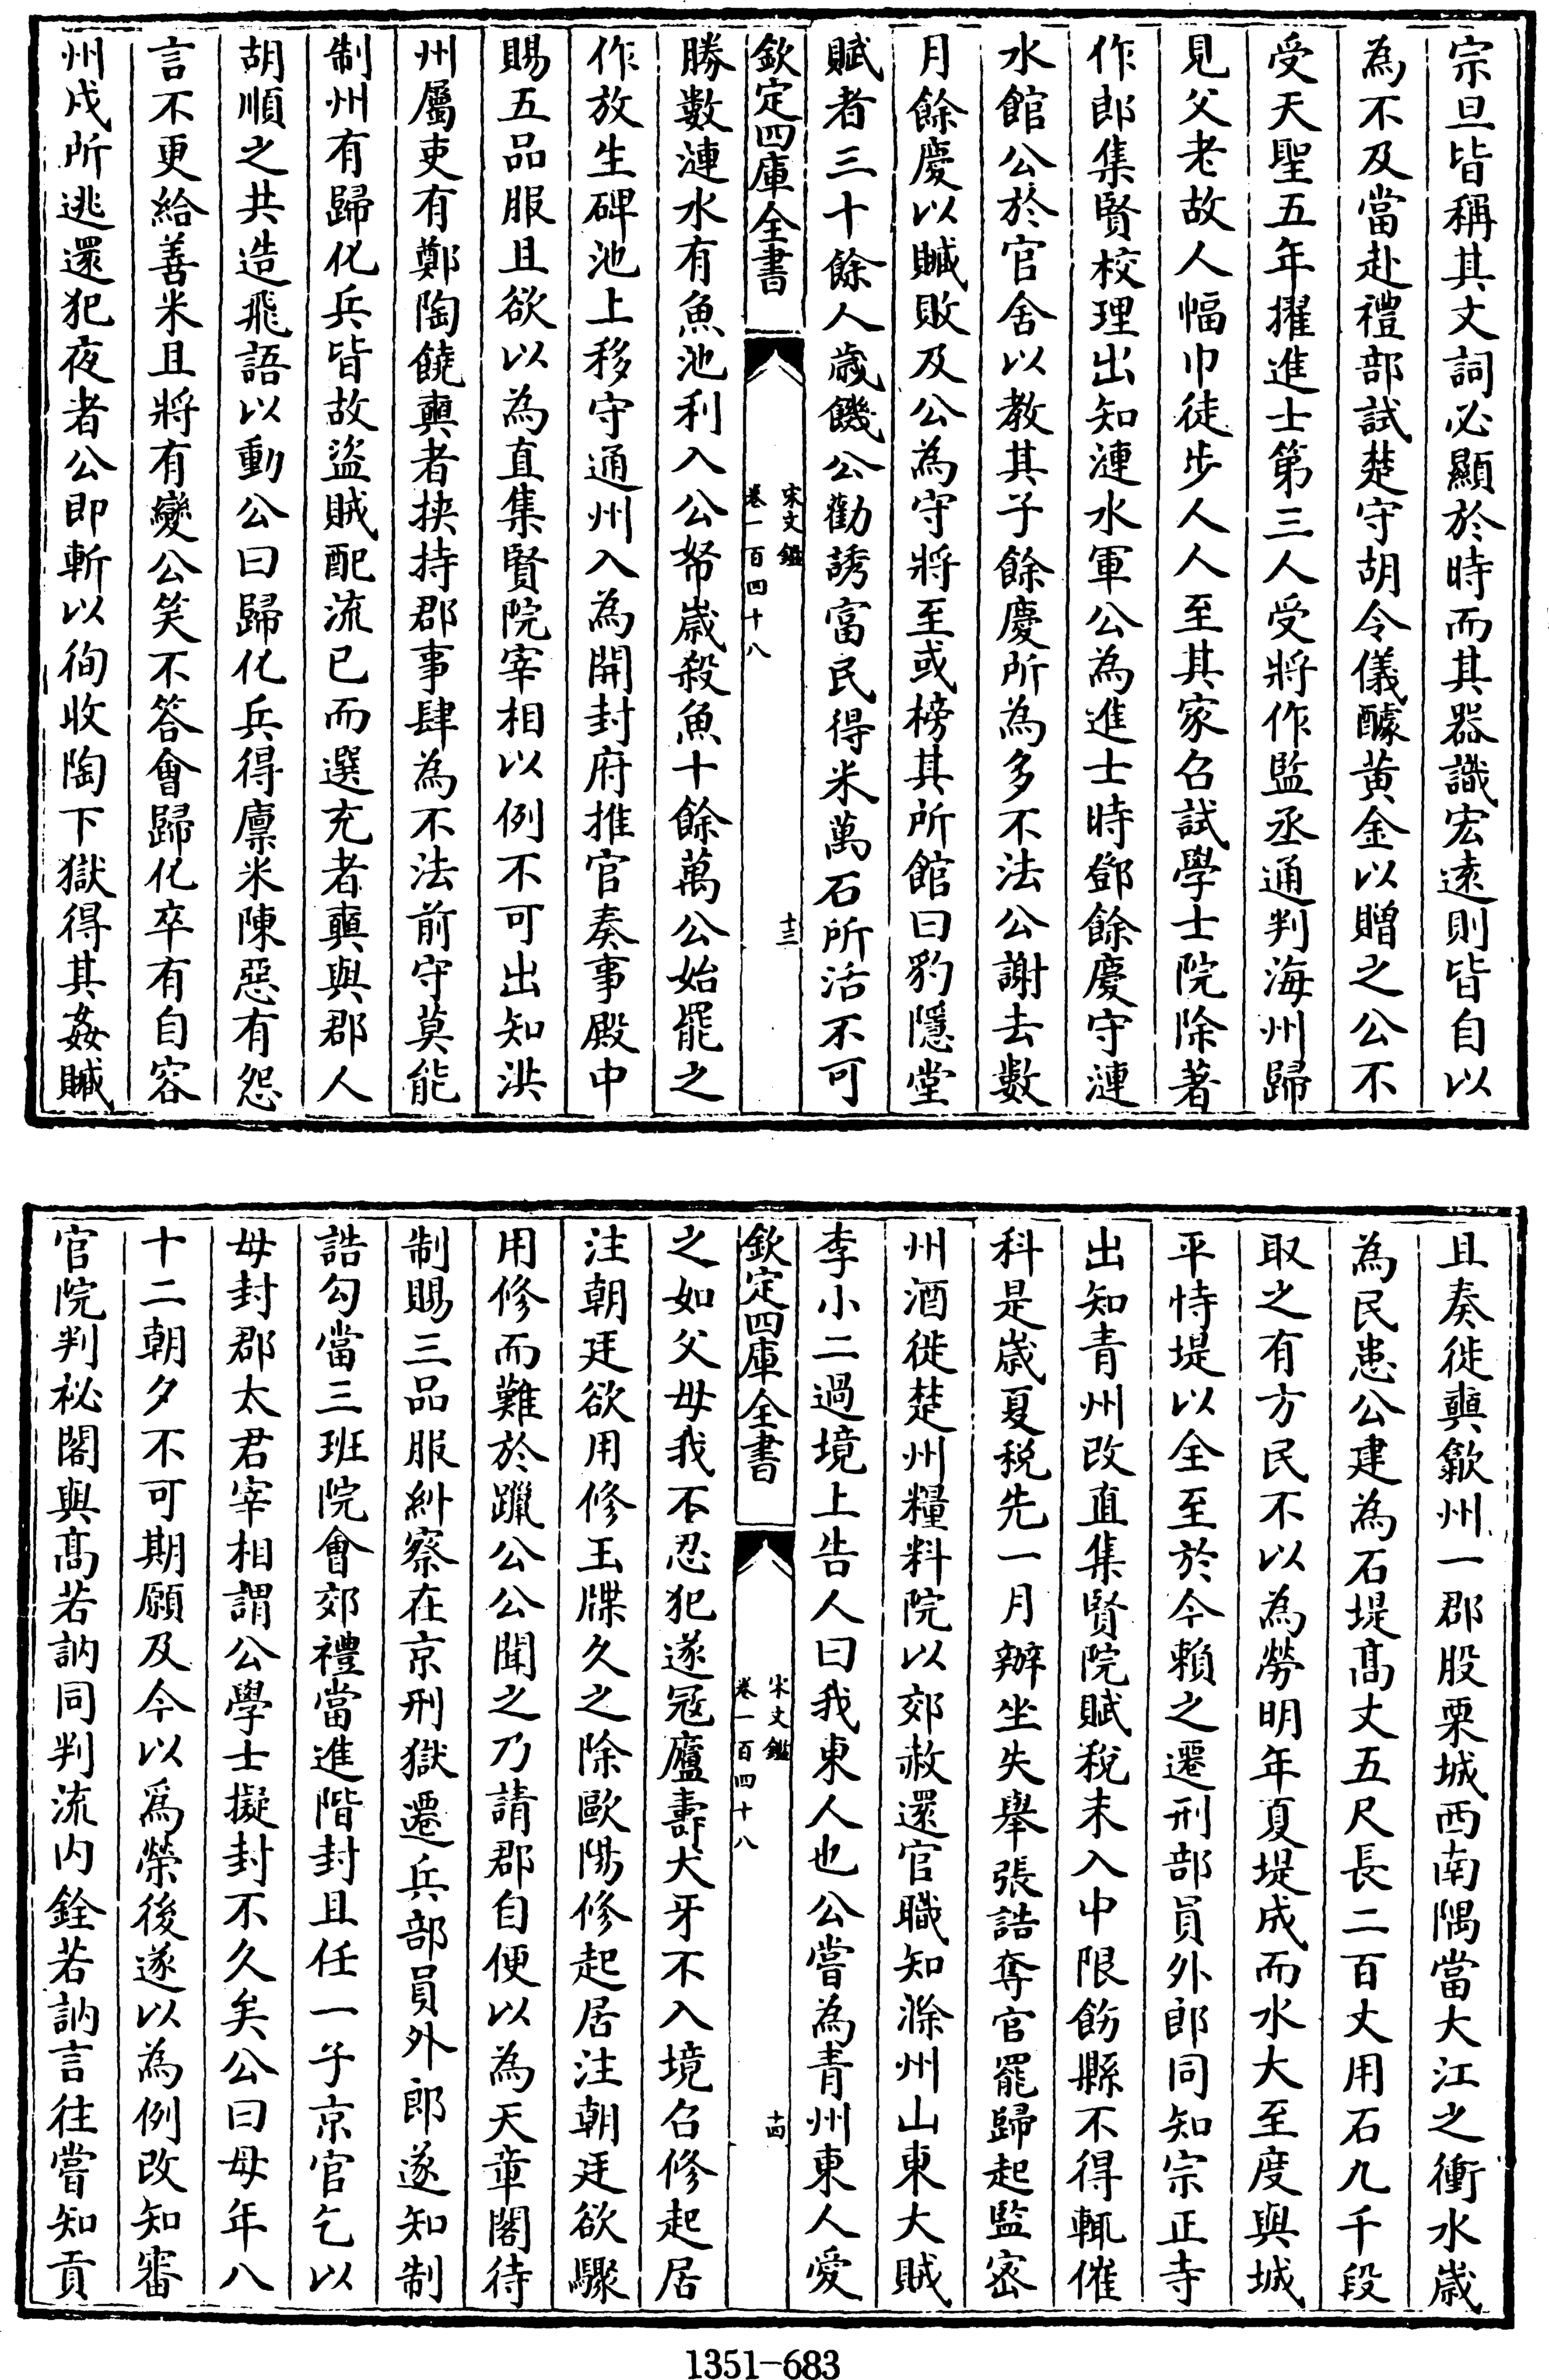 宗旦皆稱其文詞必顯於時而其器識宏逺則皆自以
為不及當赴禮部試楚守胡令儀醵黄金以贈之公不
受天聖五年擢進士第三人受將作監丞通判海州歸
見父老故人幅巾徒步人人至其家召試學士院除著
作郎集賢校理出知漣水軍公為進士時鄧餘慶守漣
水館公於官舍以教其子餘慶所為多不法公謝去數
月餘慶以贓敗及公為守將至或榜其所館曰豹隱堂
賦者三十餘人歲饑公勸誘富民得米萬石所活不可
欽定四庫全書
宋文鑑
卷一百四十八
十三
勝數漣水有魚池利入公帑歲殺魚十餘萬公始罷之
作放生碑池上移守通州入為開封府推官奏事殿中
賜五品服且欲以為直集賢院宰相以例不可出知洪
州屬吏有鄭陶饒奭者挾持郡事肆為不法前守莫能
制州有歸化兵皆故盜賊配流已而選充者奭與郡人
胡順之共造飛語以動公曰歸化兵得廪米陳惡有怨
言不更給善米且將有變公笑不答會歸化卒有自容
州戍所逃還犯夜者公即斬以徇收陶下獄得其姦贓
且奏徙奭歙州一郡股栗城西南隅當大江之衝水歲
為民患公建為石堤髙丈五尺長二百丈用石九千段
取之有方民不以為勞明年夏堤成而水大至度與城
平恃堤以全至於今賴之遷刑部員外郎同知宗正寺
出知青州改直集賢院賦稅未入中限飭縣不得輒催
科是歲夏稅先一月辦坐失舉張誥奪官罷歸起監密
州酒徙楚州糧料院以郊赦還官職知滁州山東大賊
李小二過境上告人曰我東人也公嘗為青州東人愛
欽定四庫全書
宋文鑑
卷一百四十八
十四
之如父母我不忍犯遂冦廬壽犬牙不入境召修起居
注朝廷欲用修王牒久之除歐陽修起居注朝廷欲驟
用修而難於躐公公聞之乃請郡自便以為天章閣待
制賜三品服糾察在京刑獄遷兵部員外郎遂知制
誥勾當三班院會郊禮當進階封且任一子京官乞以
母封郡太君宰相謂公學士擬封不久矣公曰母年八
十二朝夕不可期願及今以爲榮後遂以為例改知審
官院判祕閣與髙若訥同判流内銓若訥言往嘗知貢
1351-683